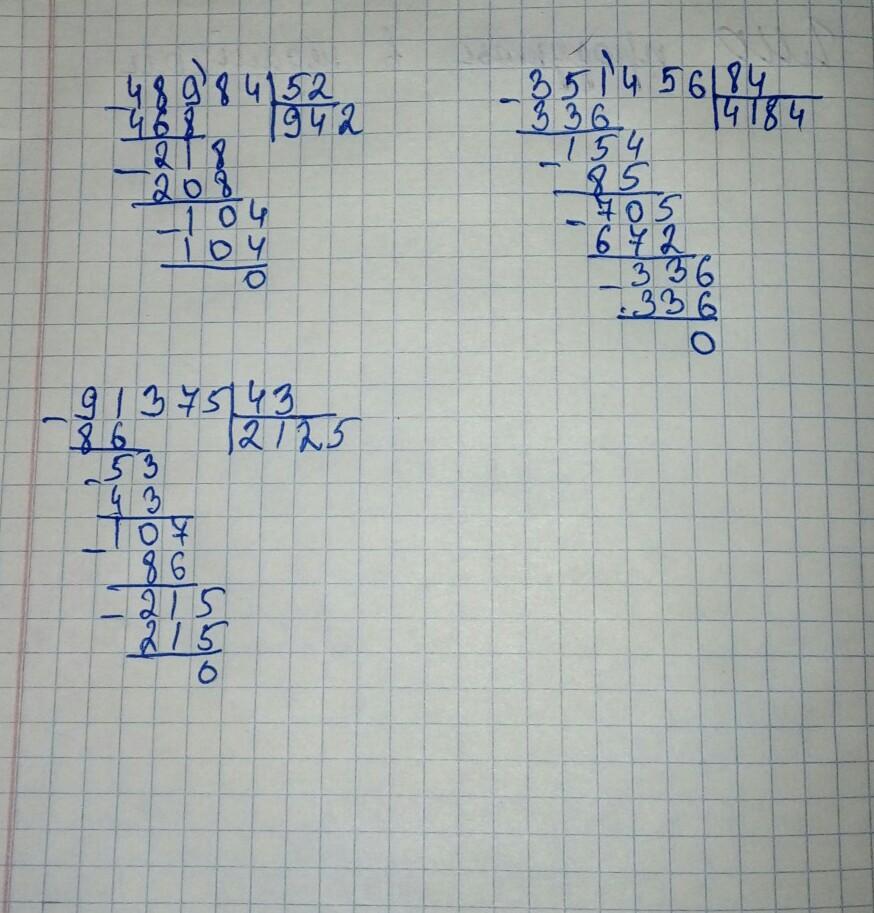 48984 52
- 468 942
218
- 208
- 104
104
0
351456 84
- 336 4184
- 154
85
- 705
672
- 336
336
0
- 91375 43
86 2125
- 53
43
- 107
86
- 215
215
0